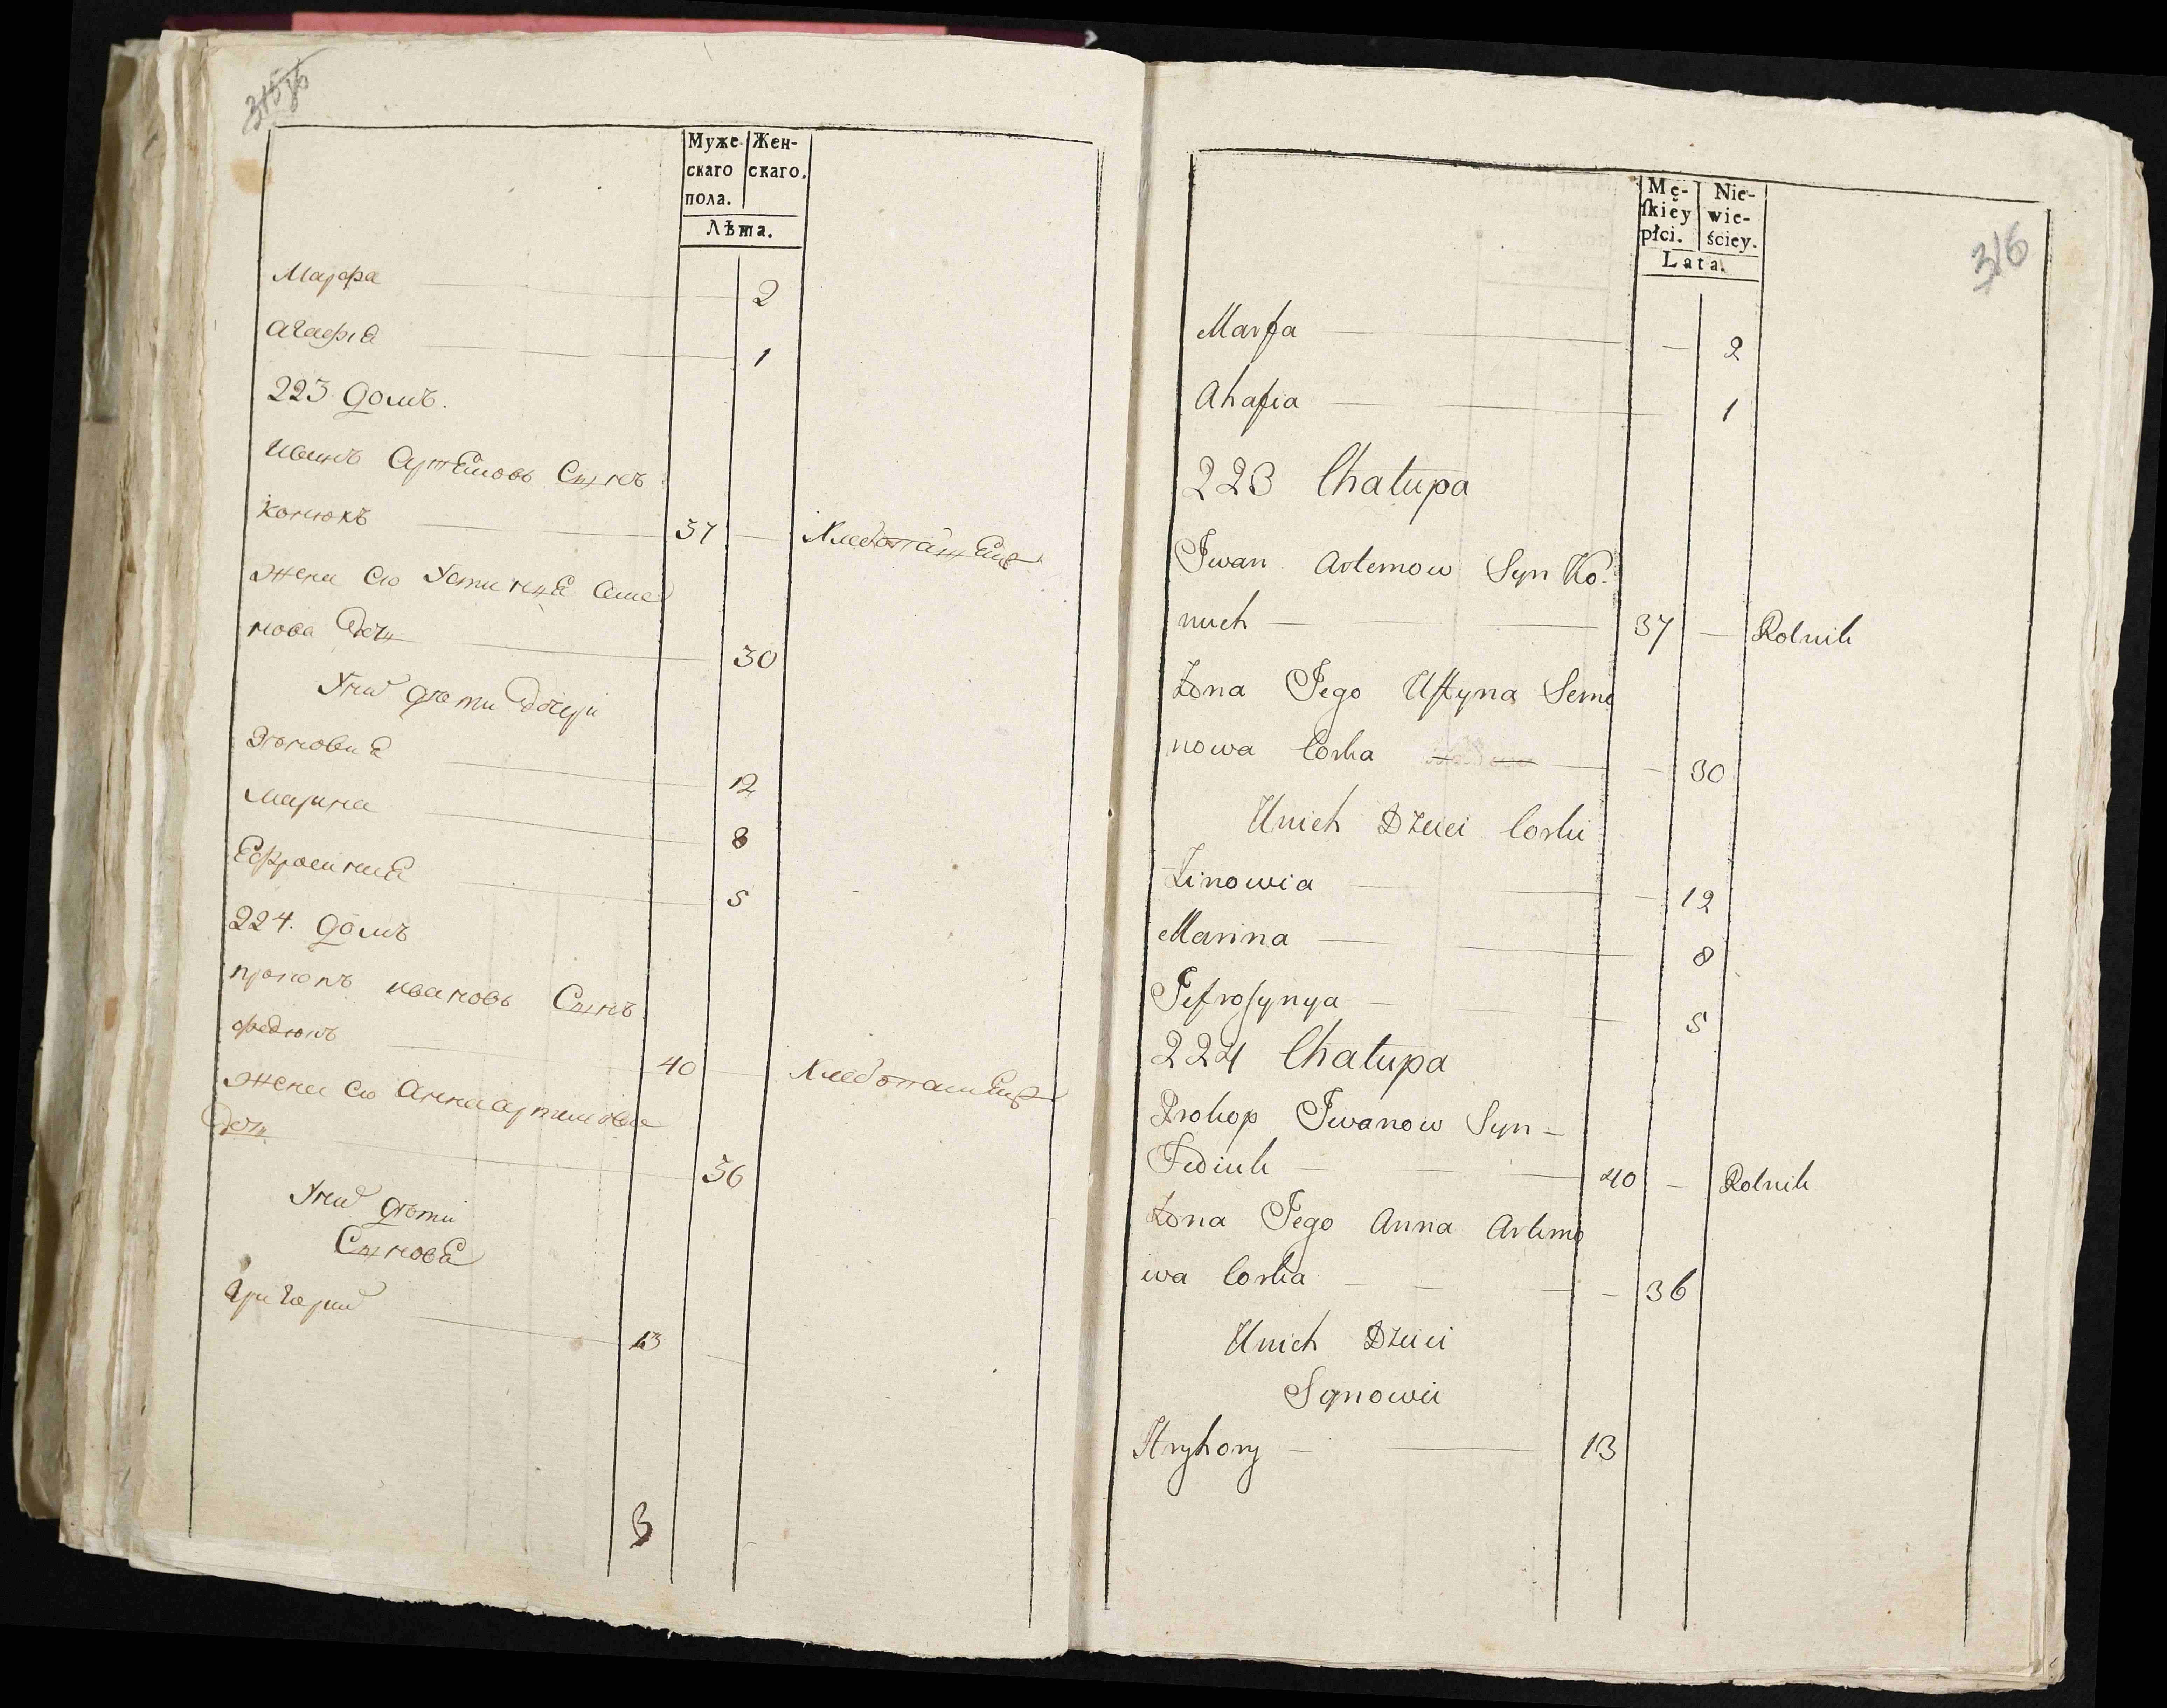 315об
Муже Жен-
скаго скаго.
пола.
Лѣта.
Марфа 2
Агафиа 1
223 домъ.
Иванъ Артемовъ Сынъ
Конюхъ 37 — Хлебопашецъ
Жена его Устиниа Семе
нова дочь 30
У них дети дочери
Зѣновиа 12
Марина 8
Ефросиниа 5
224. домъ
Прокопъ Ивановъ Сынъ
Федюкъ 40 — Хлебопашецъ
Жена его Анна Артемова
дочь 36
У них дети
Сыновья
Григорий 13 —
3
316
Mę- Nie-
ſkiéy wie-
płci. ściey.
Lata.
Marfa — — 2
Ahafia — 1
223 Chałupa
Iwan Artemow Syn Ko-
nuch — 37 — Rolnik
Żona Jego Uſtyna Seme
nowa Corka — — 30
Unich Dzieci Corki
Zinowia — — 12
Marina — 8
Jefroſynya — 5
224 Chałupa
Prokop Iwanow Syn —
Fediuk — 40 — Rolnik
Żona Jego Anna Artemo
wa Corka — — 36
Unich Dzieci
Synowie
Hryhory — 13